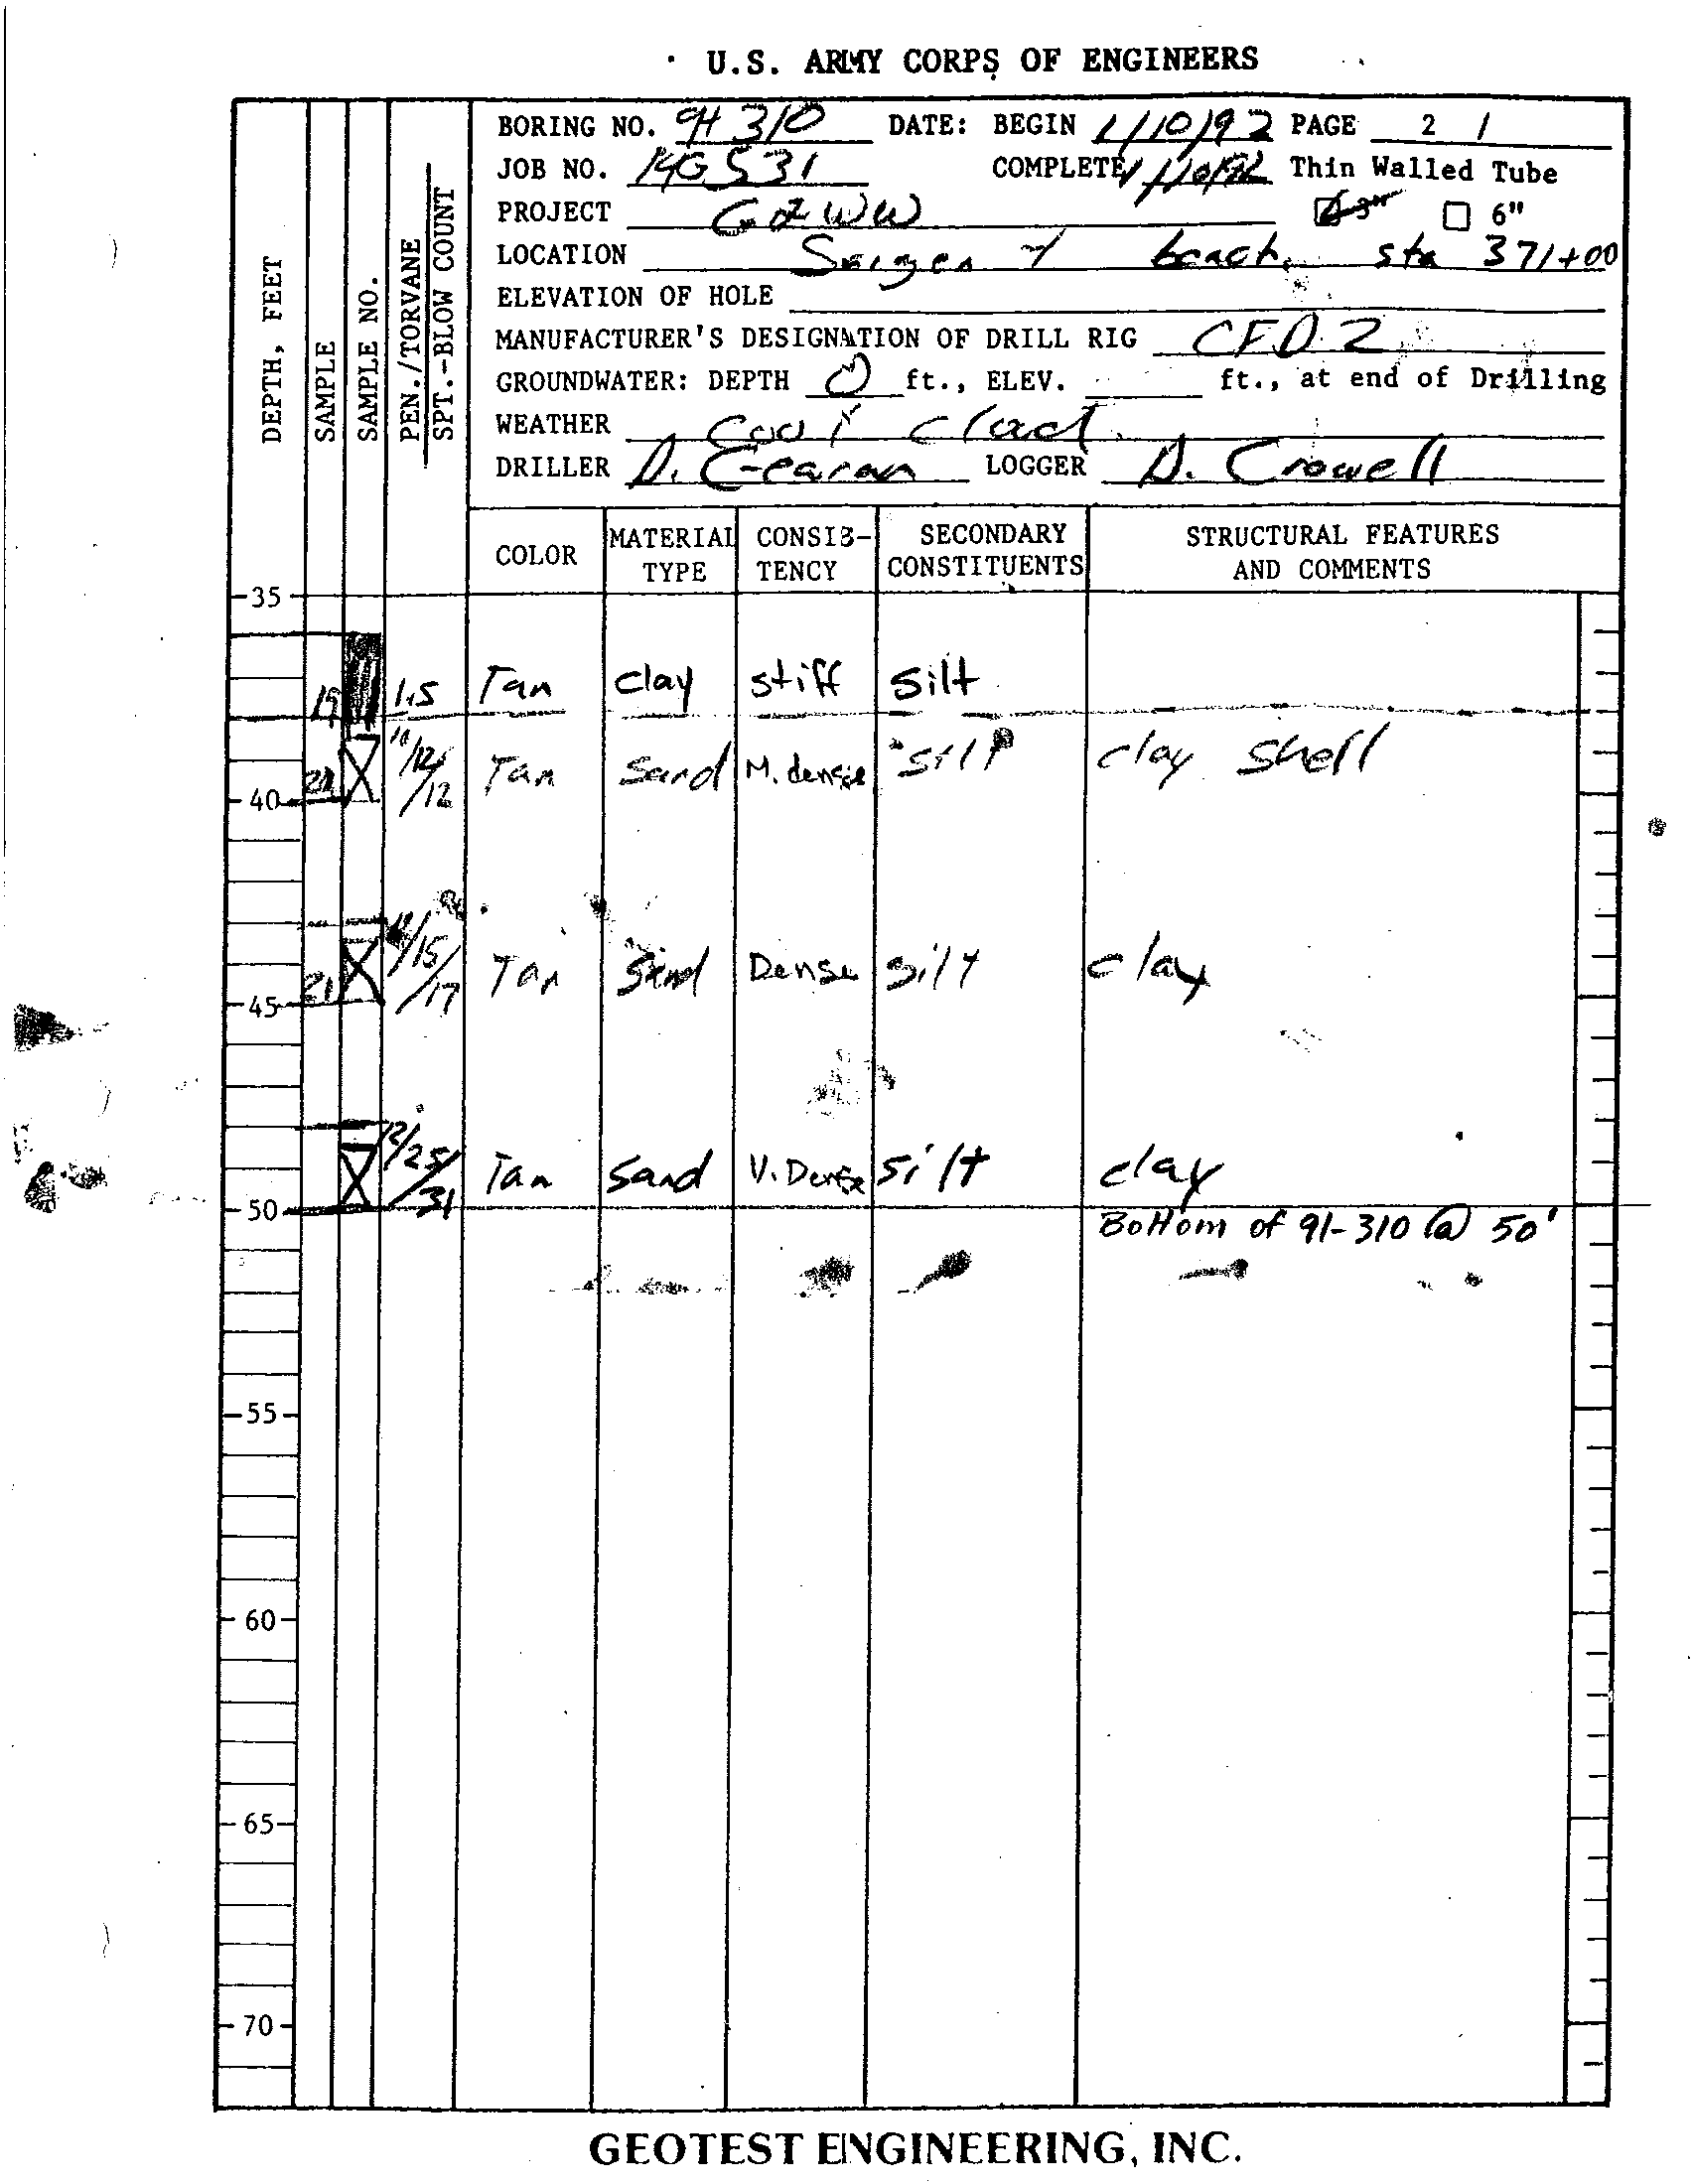 U.S. ARMY CORPS OF ENGINEERS
BORING NO. 91 310 DATE: BEGIN 1/10/92 PAGE 2 /
JOB NO. 14G531 COMPLETE 1/10/92 Thin Walled Tube
PROJECT 3" 6"
LOCATION beach, sta 371+00
ELEVATION OF HOLE
MANUFACTURER'S DESIGNATION OF DRILL RIG CFD 2
GROUNDWATER: DEPTH ft., ELEV. ft., at end of Drilling
WEATHER Cool
DRILLER D. LOGGER D. Crowell
DEPTH, FEET
SAMPLE
SAMPLE NO.
PEN./TORVANE
SPT.-BLOW COUNT
COLOR MATERIAL TYPE CONSIS-TENCY SECONDARY CONSTITUENTS STRUCTURAL FEATURES AND COMMENTS
35
19 1.5 Tan clay stiff silt
20 12/12 Tan Sand M. dense silt clay shell
40
21 /15/17 Tan Sand Dense silt clay
45
12/25/31 Tan Sand V. Dense silt clay
50
Bottom of 91-310 @ 50'
55
60
65
70
GEOTEST ENGINEERING, INC.